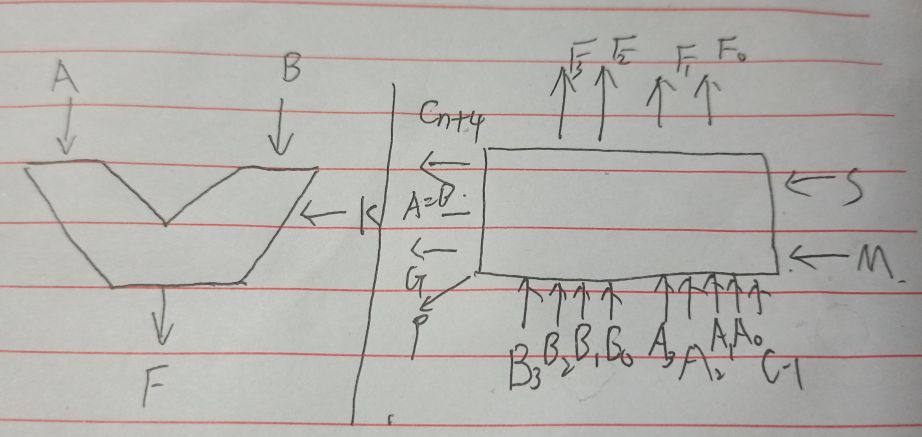 A B
K
F
F₃ F₂ F₁ F₀
Cn+4
A=B
G
P
S
M
B₃ B₂ B₁ B₀ A₃ A₂ A₁ A₀ C-1